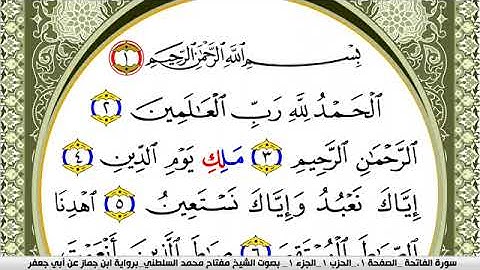 بِسْمِ ٱللَّهِ ٱلرَّحْمَٰنِ ٱلرَّحِيمِ ١
ٱلْحَمْدُ لِلَّهِ رَبِّ ٱلْعَٰلَمِينَ ٢
ٱلرَّحْمَٰنِ ٱلرَّحِيمِ ٣ مَلِكِ يَوْمِ ٱلدِّينِ ٤
إِيَّاكَ نَعْبُدُ وَإِيَّاكَ نَسْتَعِينُ ٥ ٱهْدِنَا
ٱلصِّرَٰطَ ٱلْمُسْتَقِيمَ ٦ صِرَٰطَ ٱلَّذِينَ أَنْعَمْتَ
سورة الفاتحة _الصفحة ١_ الحزب ١_ الجزء ١ _ بصوت الشيخ مفتاح محمد السلطني _برواية ابن جماز عن أبي جعفر